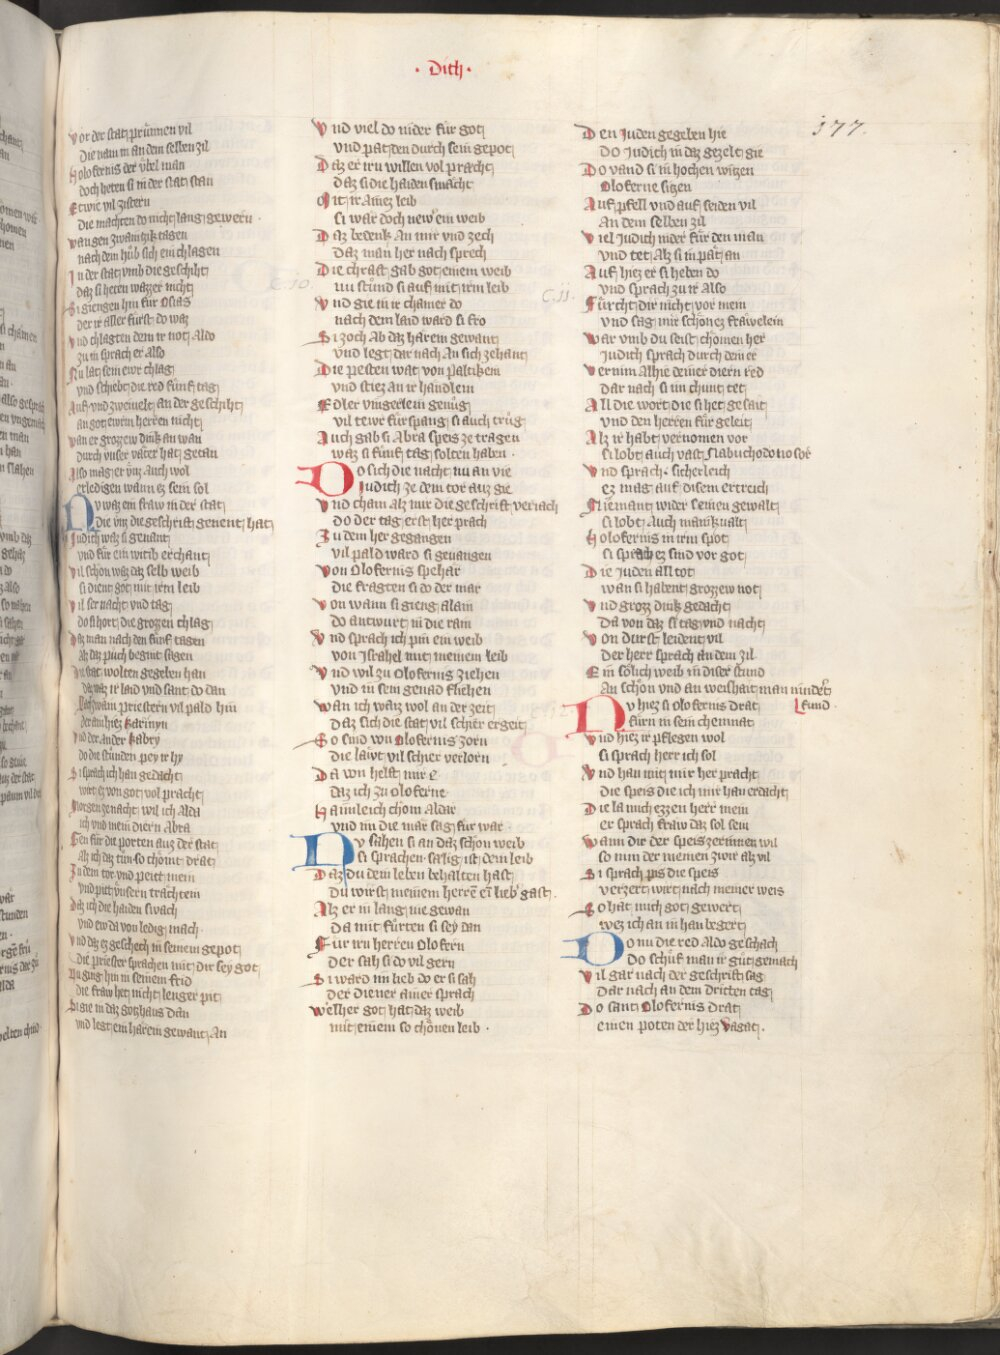 · Dith ·
177.
Vor der stat prunnen vil
Die nam in an dem selben zil
Holofernis der vbel man
doch heten si in der stat stan
Etwie vil zistern
die machten do nicht lang gewern ·
wan gen zwaintzik tagen
nach dem hub sich ein chlagen
In der stat vmb die geschiht
daz si heten wazzer nicht
Si giengen hin fur Osias
der ir aller furst do waz
vnd chlagten dem ir not Aldo
zu in sprach er also
Nu lat sein ewr chlag
vnd schiebt die red funf tag
Auf vnd zweivelt an der geschiht
an got ewrm herren nicht
wan er grozzew dink an wan
durch vnser väter hat getan
Also mag er vnz Auch wol
erledigen wann ez sein sol
Nv waz ein fraw in der stat
die vnz die geschrift genent hat
Judich waz si genant
vnd für ein witib erchant
vil schön waz daz selb weib
si dient got mit irm leib
vil ser nacht vnd tag
do si hort die grozzen chlag
Daz man nach den funf tagen
Alz daz puch beginnt sagen
Die stat wolten gegeben han
daz waz ir laid vnd sant do dan
Nach zwain priestern vil pald hin
der ain hiez karinyn
vnd der ander kabry
do die stunden pey ir hy
Si sprach ich han gedacht
wirt ez von got vol pracht
Morgen ze nacht wil ich Alda
ich vnd mein diern Abra
Gen für die porten auz der stat
Alz ich daz tun so chömt drat
Zu dem tor vnd peitt mein
vnd pitt vnsern trachtein
Daz ich die haiden swach
vnd ew da von ledig mach ·
vnd daz ez geschech in seinem gepot
die priester sprachen mit dir sey got
Nu ging hin in seinem frid
die fraw het nicht lenger pit
Si gie in daz gotzhaus dan
vnd legt ein härein gewant An
Vnd viel do nider für got
vnd pat den durch sein gepot
Daz er irn willen vol pracht
daz si die haiden swächt
Mit ir Ainez leib
si wär doch newr ein weib
Daz bedenk An mir vnd zech
daz man her nach sprech
Die chraft gab got einem weib
nu stund si auf mit irm leib
C. 10.
Vnd gie in ir chamer do
nach dem laid ward si fro
Si zoch Ab daz härein gewant
vnd legt dar nach An sich zehant
Die pesten wat von paltikein
vnd stiez an ir handlein
Edler vingerlein genug
vil tewr fürspang si auch trug
Auch gab si Abra speis ze tragen
waz si funf tag solten haben ·
Do sich die nacht nu an vie
Judich ze dem tor auz gie
Vnd cham Alz mir die geschrift veriach
do der tag erst her prach
Zu dem her gegangen
vil pald ward si geuangen
Von Olofernis spehär
die fragten si do der mär
Von wann si gieng alain
do antwurt in die rain
Vnd sprach ich pin ein weib
von Israhel mit meinem leib
Vnd wil zu Olofernis ziehen
vnd in sein genad fliehen
Wan ich waiz wol an der zeit
Daz sich die stat vil schier ergeit
So sind von Olofernis zorn
die läwt vil schier verlorn
Da von helft mir e
daz ich zu Oloferne
Haimleich chöm Aldar
vnd im die mär sag für war
Nv sahen si an daz schön weib
si sprachen sälig ist dein leib
Daz du dein leben behalten hast
Du wirst meinem herrē eī lieb gast.
Alz er in lang nie gewan
da mit fürten si sey dan
Für irn herren Olofern
der sah si do vil gern
Si ward im lieb do er si sah
der diener ainer sprach
Welher got hat daz weib
mit einem so chönen leib ·
Den Juden gegeben hie
Do Judich in daz gezelt gie
Do vand si in hochen witzen
Oloferne sitzen
Auf pfell vnd auf seiden vil
An dem selben zil
Viel Judich nider für den man
vnd tet Alz si in pät an
Auf hiez er si heben do
vnd sprach zu ir Also
C. 11.
Fürcht dir nicht vor mein
vnd sag mir schönez fräwelein
War vmb du seist chomen her
Judich sprach durch dein er
Vernim Alhie deiner diern red
dar nach si im chunt tet
All die wort die si het gesait
vnd den herren für geleit
Alz ir habt vernomen vor
si lobt auch vast Nabuchodonosor
Vnd sprach · sicherleich
ez mag auf disem ertreich
Niemant wider seinen gewalt
si lobt Auch manikualt
Holofernis in irm spot
si sprach ez sind vor got
Die Juden all tot
wan si habent grozew not
Vnd grozz dink gedacht
Da von daz si tag vnd nacht
Von durst leident vil
Der herr sprach an dem zil
Ein sölich weib in diser stund
An schön vnd an weishait man nindert
fund ·
Nv hiez si olofernis drat
fürn in sein chemnat
Vnd hiez ir pflegen wol
si sprach herr ich sol
Vnd han mit mir her pracht
die speis die ich mir han erdacht
Die la mich ezzen herr mein
er sprach fraw daz sol sein
Wann die der speis zerinnen wil
so nim der meinen zwir alz vil
Si sprach pis die speis
verzert wirt nach meiner weis
So hat mich got gewert
wez ich an in han begert
Do nu die red Aldo geschach
Do schuf man ir gut gemach
Vil gar nach der geschrift sag
Dar nach an dem dritten tag
Do sant Olofernis drat
einen poten der hiez Vagat ·